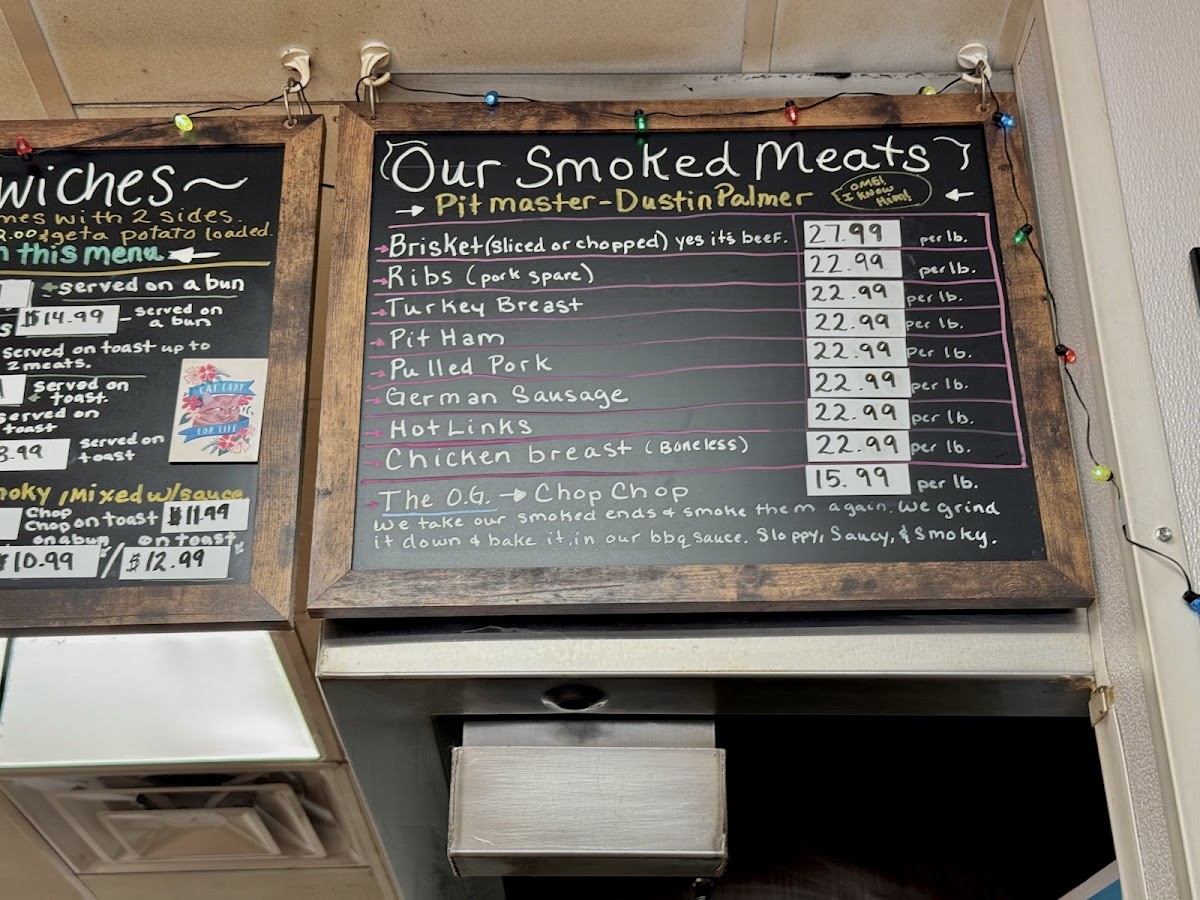 wiches~
mes with 2 sides.
2.00 & get a potato loaded.
this menu
served on a bun
$14.99 - served on
a bun
served on toast up to
2 meats.
served on
toast.
served on
toast
served on
8.99 toast
CAT LADY
FOR LIFE
moky, Mixed w/sauce
Chop
Chop on toast $11.99
on a bun on toast
$10.99 / $12.99
Our Smoked Meats
Pit master - Dustin Palmer
OMG!
I KNOW
Him!
Brisket (sliced or chopped) yes it's beef. 27.99 per lb.
Ribs (pork spare) 22.99 per lb.
Turkey Breast 22.99 per lb.
Pit Ham 22.99 per lb.
Pulled Pork 22.99 per lb.
German Sausage 22.99 per lb.
Hot Links 22.99 per lb.
Chicken breast (Boneless) 22.99 per lb.
The O.G. → Chop Chop 15.99 per lb.
We take our smoked ends & smoke them again. We grind
it down & bake it in our bbq sauce. Sloppy, Saucy, & Smoky.